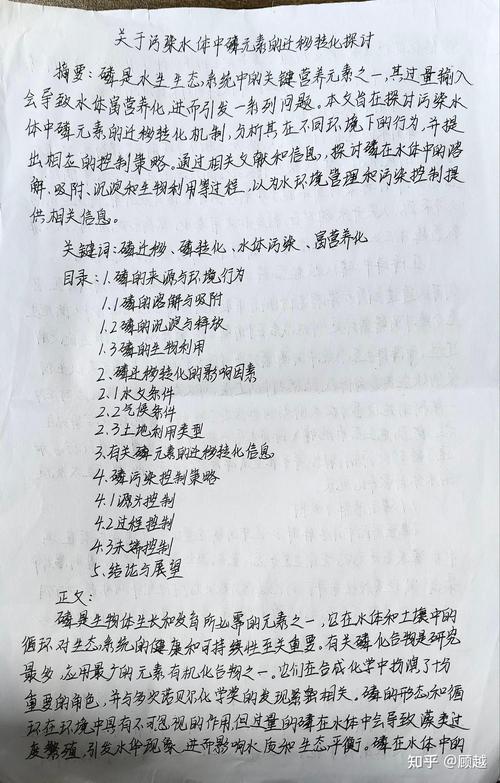 关于污染水体中磷元素的迁移转化探讨
摘要：磷是水生生态系统中的关键营养元素之一，其过量输入
会导致水体富营养化，进而引发一系列问题。本文旨在探讨污染水
体中磷元素的迁移转化机制，分析其在不同环境下的行为，并提
出相应的控制策略。通过相关文献和信息，探讨磷在水体中的溶
解、吸附、沉淀和生物利用等过程，以为水环境管理和污染控制提
供相关信息。
关键词：磷迁移、磷转化、水体污染、富营养化
目录：1.磷的来源与环境行为
1.1磷的溶解与吸附
1.2磷的沉淀与释放
1.3磷的生物利用
2.磷迁移转化的影响因素
2.1水文条件
2.2气候条件
2.3土地利用类型
3.有关磷元素的迁移转化信息
4.磷污染控制策略
4.1源头控制
4.2过程控制
4.3末端控制
5.结论与展望
正文：
磷是生物体生长和发育所必需的元素之一，它在水体和土壤中的
循环对生态系统的健康和可持续性至关重要。有关磷化合物是研究
最多，应用最广的元素有机化合物之一。它们在合成化学中扮演了十分
重要的角色，并与多次诺贝尔化学奖的发现紧密相关。磷的形态和循
环在环境中具有不可忽视的作用，但过量的磷在水体中会导致藻类过
度繁殖，引发水华现象，进而影响水质和生态平衡。磷在水体中的
知乎 @顾越